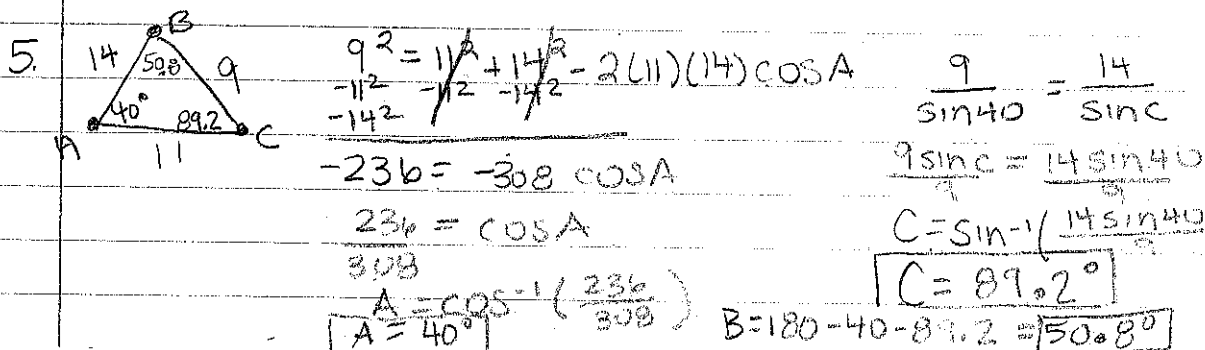 5.
B
14 50.8 9
40° 89.2
A 11 C
9² = 11² + 14² - 2(11)(14) cosA
-11² -11² -14²
-14²
-236 = -308 cosA
236/308 = cosA
A = cos⁻¹(236/308)
A = 40°
9/sin40 = 14/sinC
9sinC/9 = 14sin40/9
C = sin⁻¹(14sin40/9
C = 89.2°
B = 180-40-89.2 = 50.8°